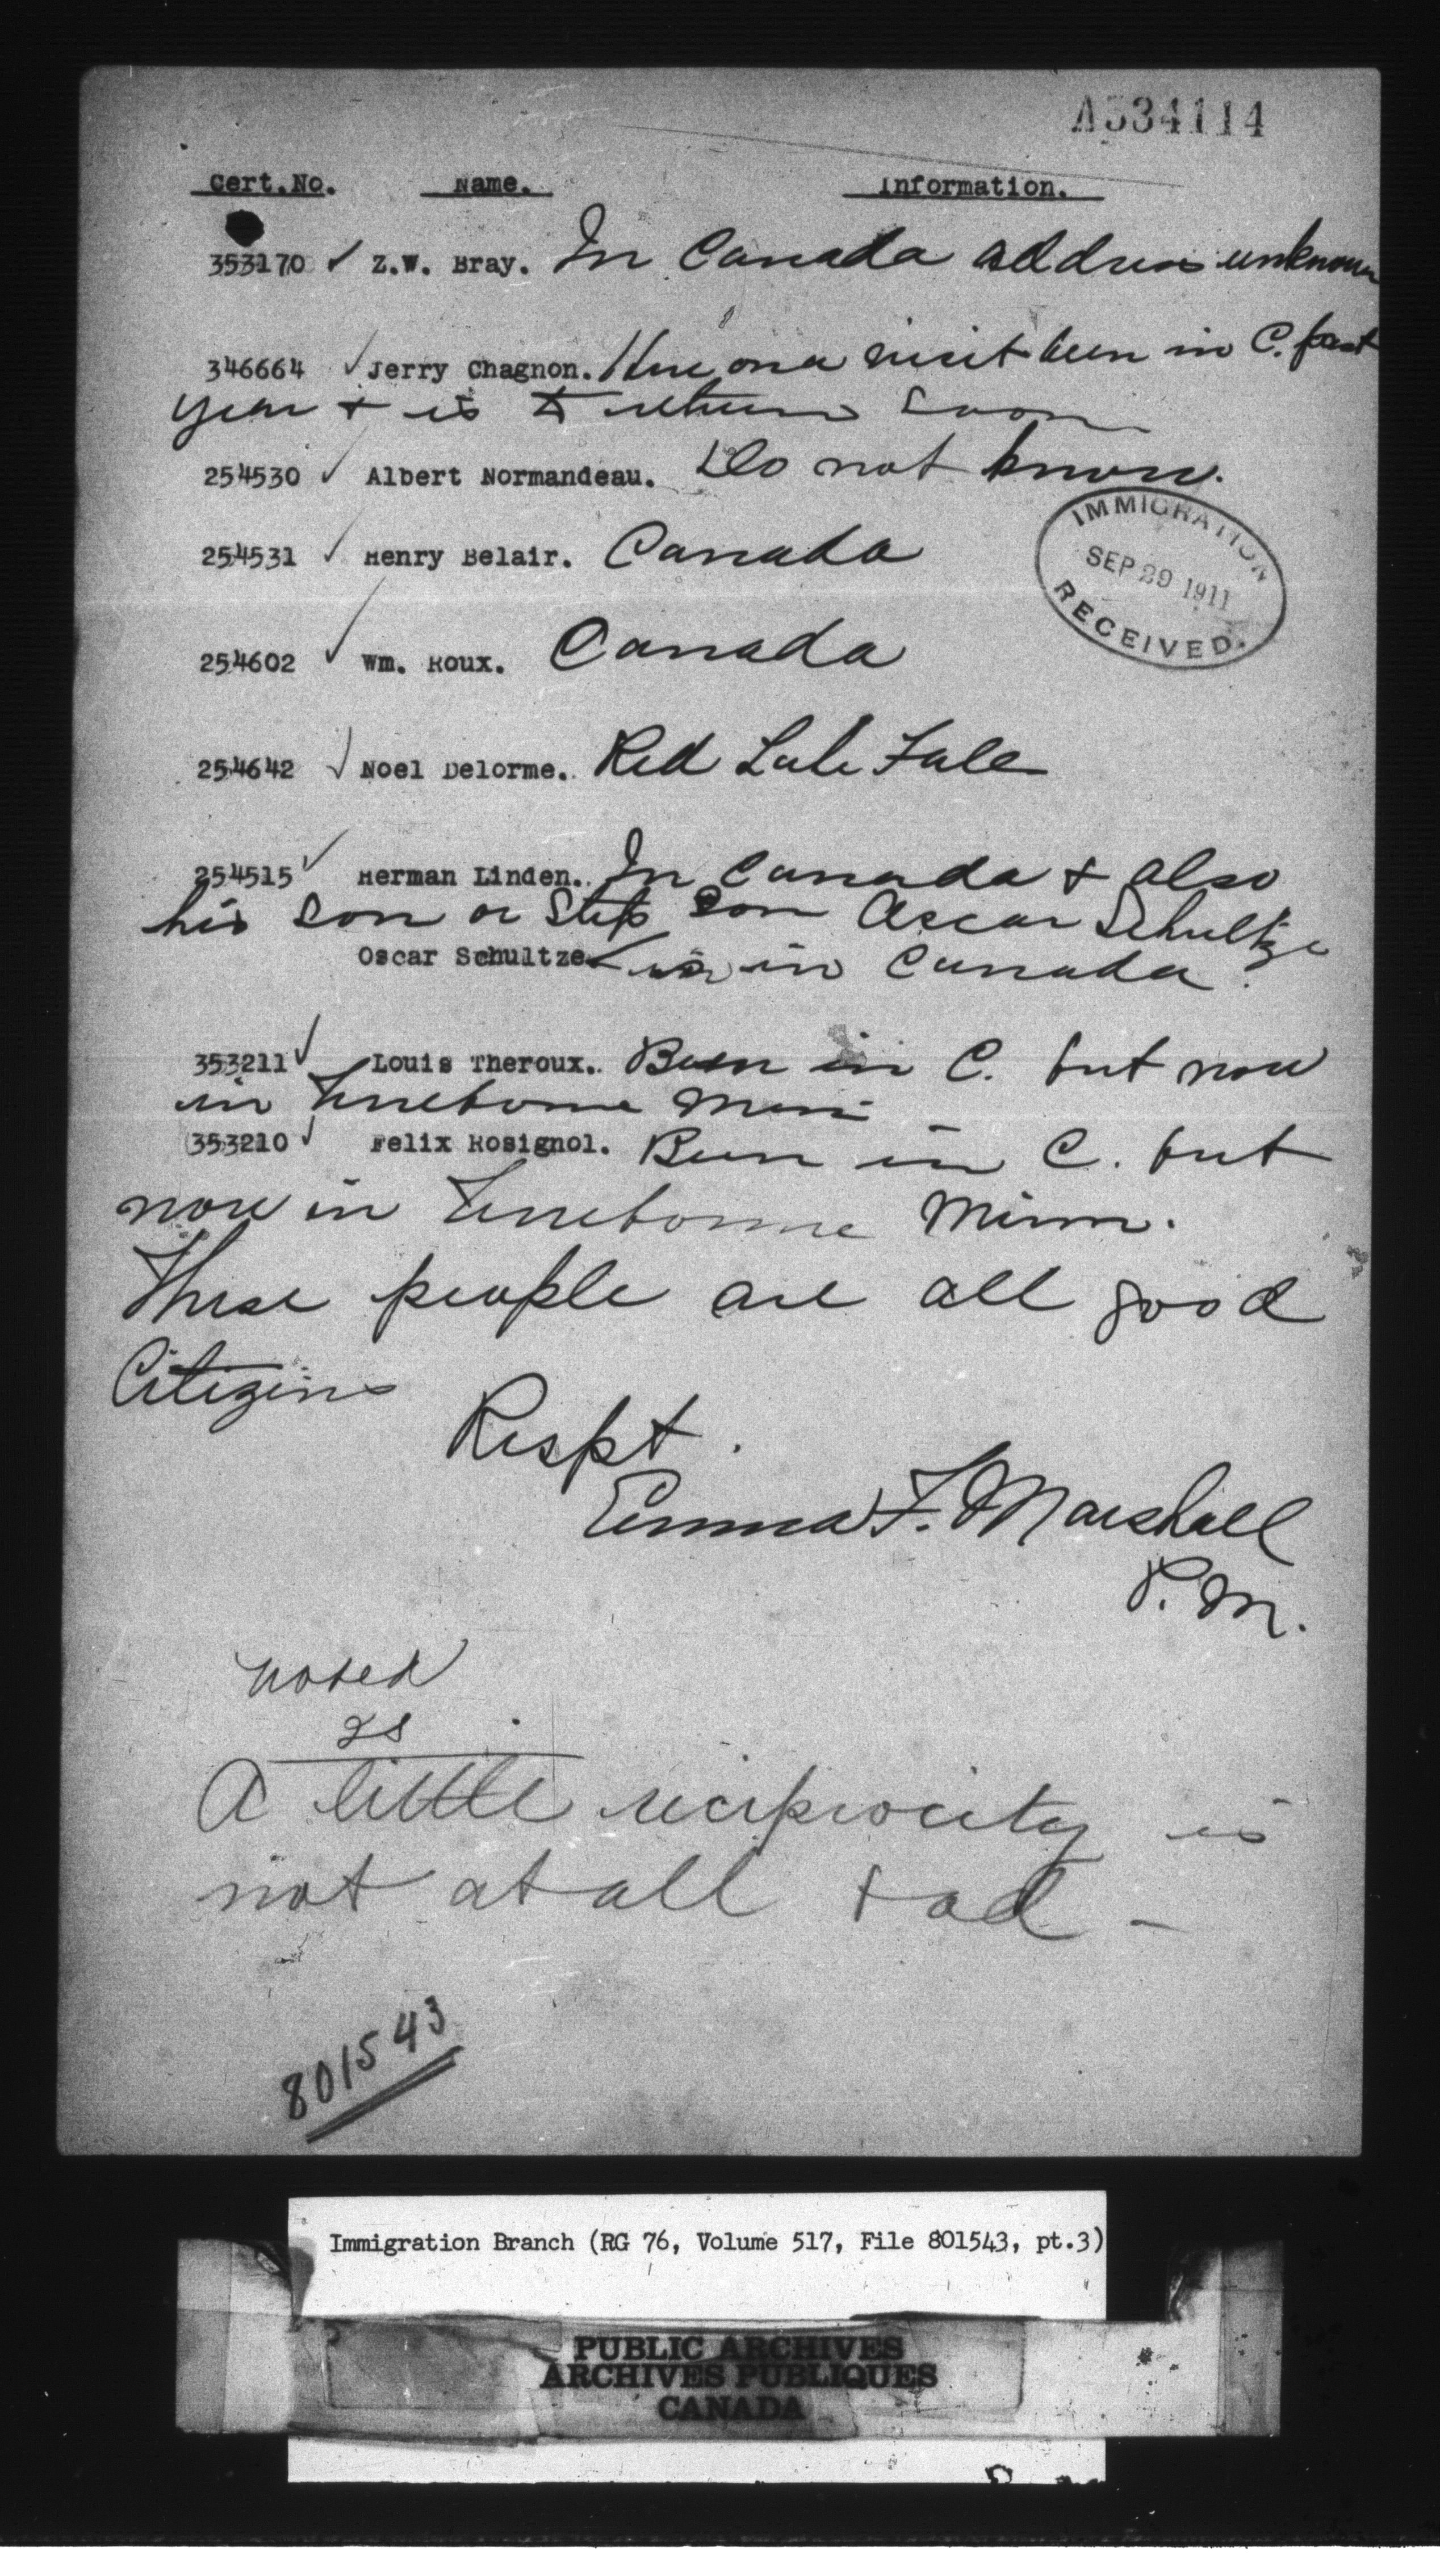 A534114
Cert.No. Name. Information.
353170 ✓ Z.W. Bray. In Canada address unknown
346664 ✓ Jerry Chagnon. Here on a visit been in C. past
year + is to return soon
254530 ✓ Albert Normandeau. Do not know.
254531 ✓ Henry Belair. Canada
IMMIGRATION
SEP 29 1911
RECEIVED.
254602 ✓ Wm. Roux. Canada
254642 ✓ Noel Delorme. Red Lake Falls
254515 ✓ Herman Linden. In Canada + also
his son or step son Oscar Schultze
Oscar Schultze ✓ is in Canada.
353211 ✓ Louis Theroux. Been in C. but now
in Terrebonne Minn
353210 ✓ Felix Rosignol. Been in C. but
now in Terrebonne Minn.
These people are all good
Citizens
Respt.
Emma F. Marshall
P.M.
noted
A little reciprocity is
not at all bad -
801543
Immigration Branch (RG 76, Volume 517, File 801543, pt.3)
PUBLIC ARCHIVES
ARCHIVES PUBLIQUES
CANADA